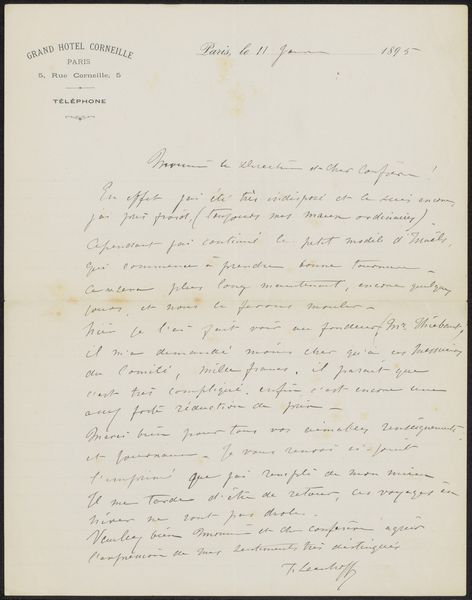 GRAND HOTEL CORNEILLE
PARIS
5, Rue Corneille, 5
TÉLÉPHONE
Paris, le 11 1895
Monsieur le Directeur et cher Confrère!
En effet j'ai été très indisposé et le suis encore,
j'ai pris froid, (toujours mes maux ordinaires)
Cependant j'ai continué le petit modèl d'
qui commence à prendre bonne tournure —
ce sera plus long maintenant, encore quelques
jours, et nous le ferons mouler —
hier je l'ai fait voir au fondeur (Mr. Thiébaut)
il m'a demandé moins cher qu'à ces Messieurs
du Comité, mille francs, il parait que
c'est très compliqué, enfin c'est encore une
assez forte réduction de prix —
Merci bien pour tous vos aimables renseignements
et journaux — Je vous renvoi ci-joint
l'imprimé que j'ai rempli de mon mieux
Il me tarde d'être de retour, ces voyages en
hiver ne sont pas droles.
Veuillez bien Monsieur et cher confrère agréer
l'expression de mes sentiments très distingués